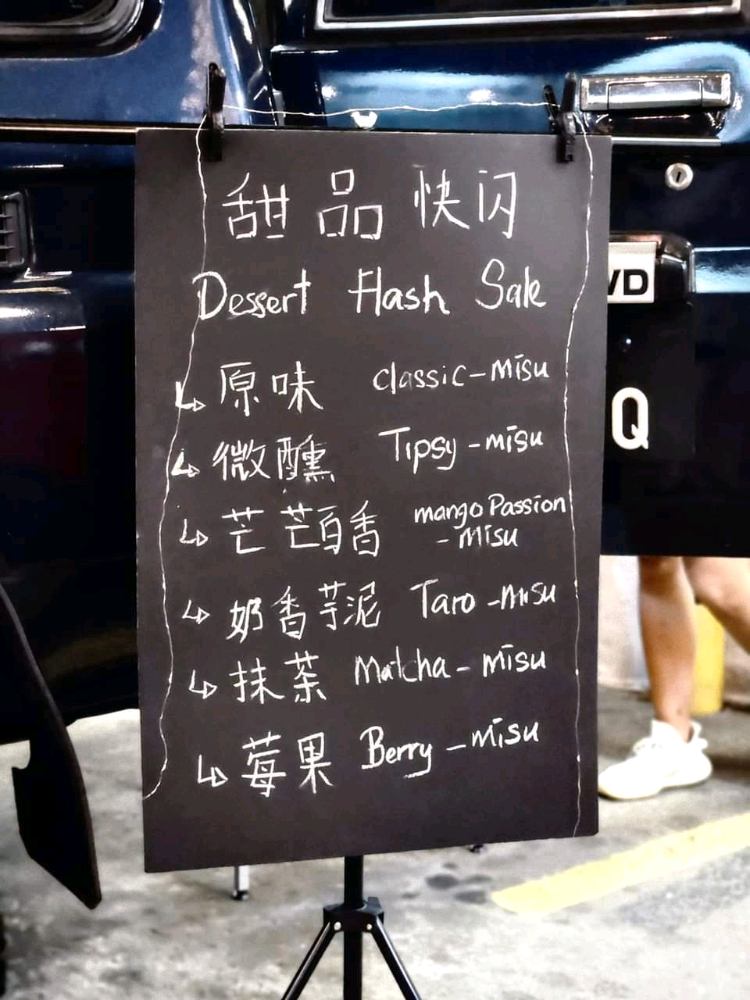 甜品快闪
Dessert Flash Sale
原味 classic-misu
微醺 Tipsy-misu
芒芒百香 mango Passion
-misu
奶香芋泥 Taro-misu
抹茶 Matcha-misu
莓果 Berry-misu
VD
Q